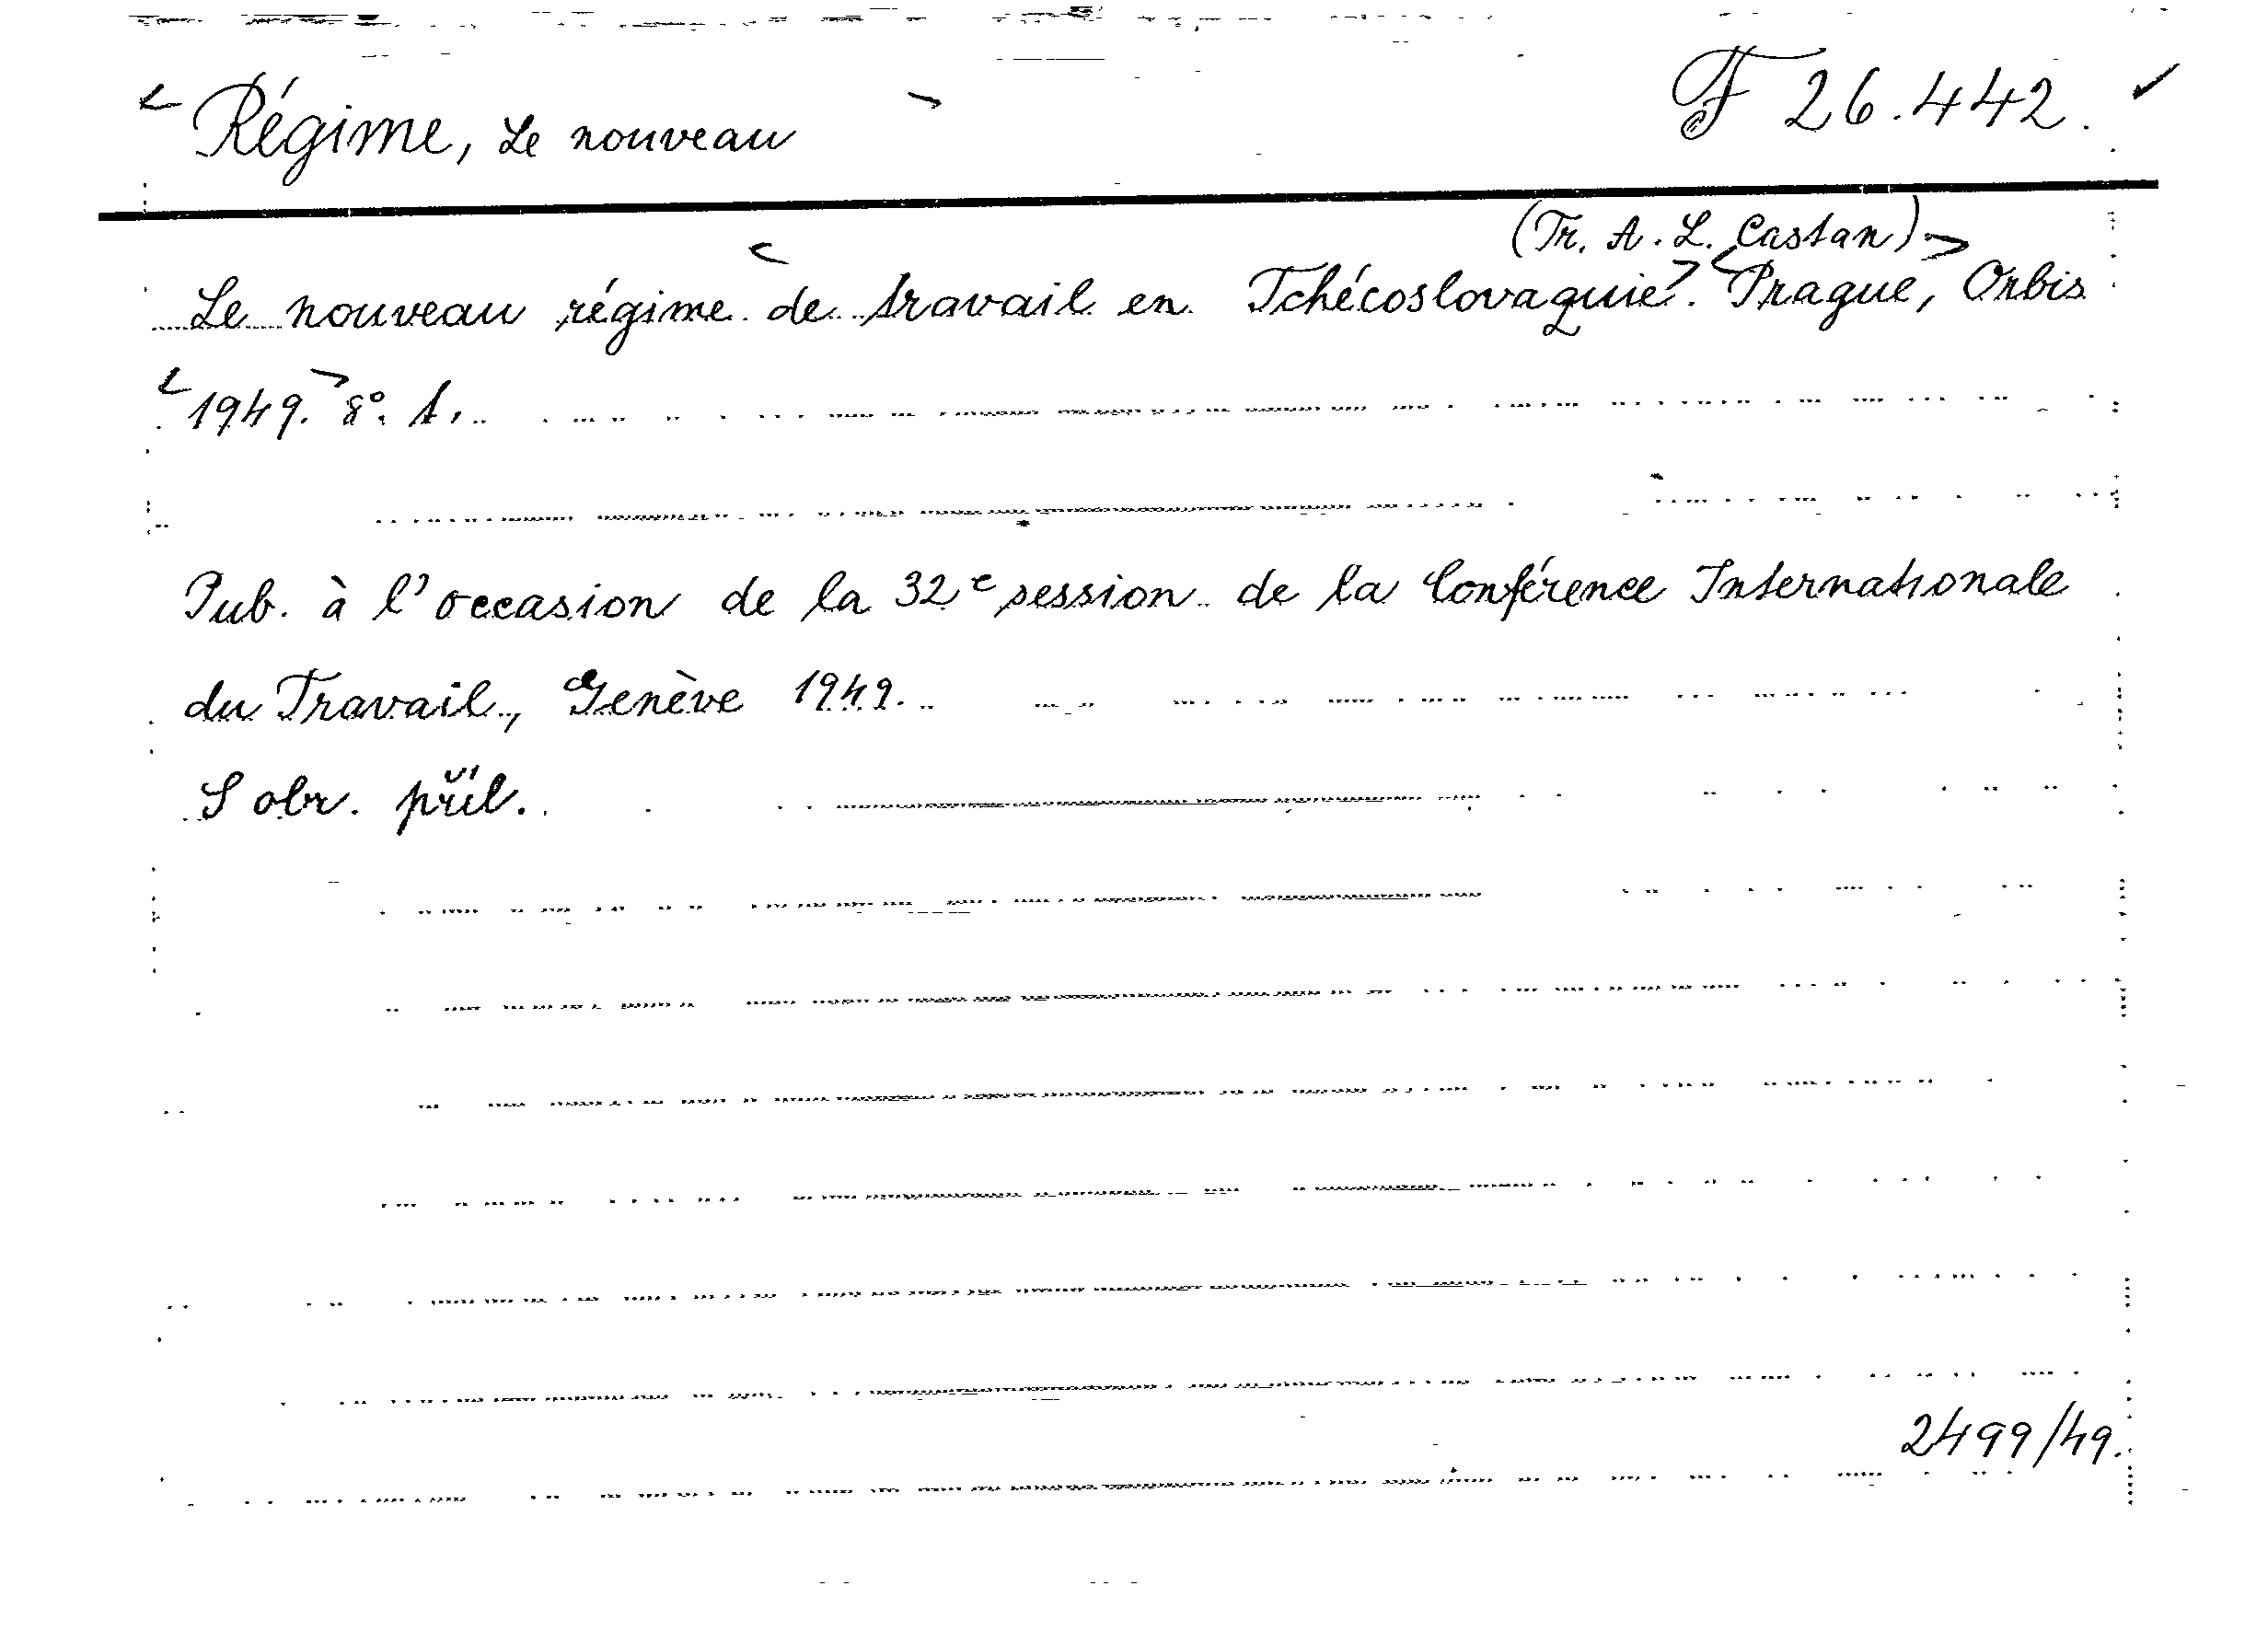 Régime, Le nouveau F 26.442.
(Tr. A. L. Castan)
Le nouveau régime de travail en Tchécoslovaquie. Prague, Orbis
1949. 8°.
Pub. à l'occasion de la 32e session de la Conférence Internationale
du Travail, Genève 1949.
S obr. příl.
2499/49.